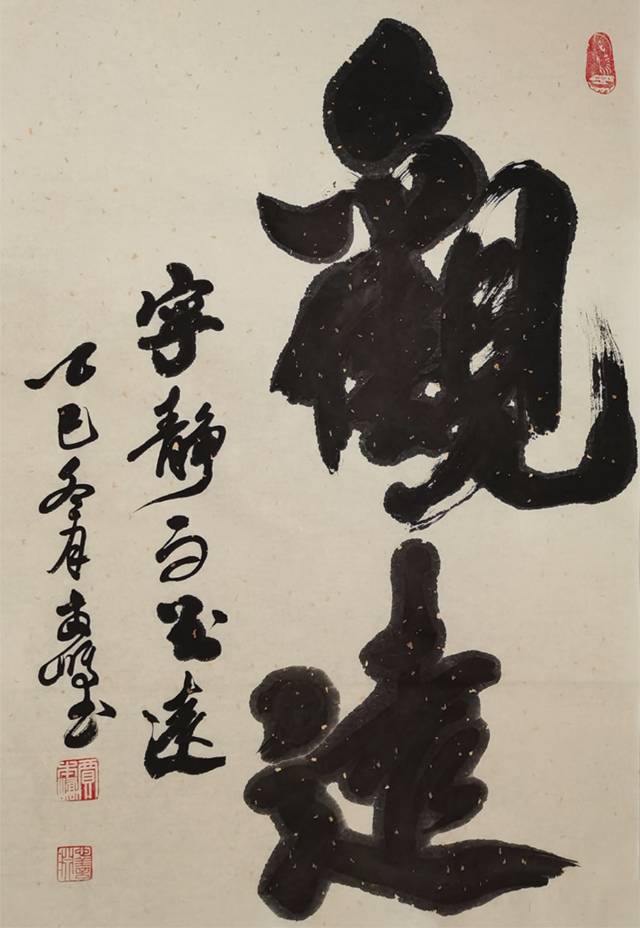 觀遠
寧靜而致遠
乙巳冬月鵬書